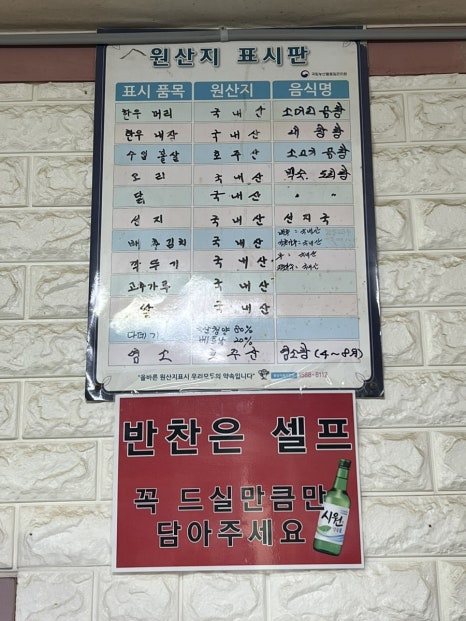 원산지 표시판
국립농산물품질관리원
표시 품목 원산지 음식명
한우 머리 국내산 소머리 곰탕
한우 내장 국내산 내장탕
수입 볼살 호주산 소고기 곰탕
오리 국내산 백숙, 도리탕
닭 국내산 " "
선지 국내산 선지국
배추김치 국내산
깍두기 국내산
고추가루 국내산
쌀 국내산
다데기 60% 20%
염소 호주산 염소탕 (4~8月)
"올바른 원산지표시 우리모두의 약속입니다" 1588-8112
반찬은 셀프
꼭 드실만큼만
담아주세요
시원